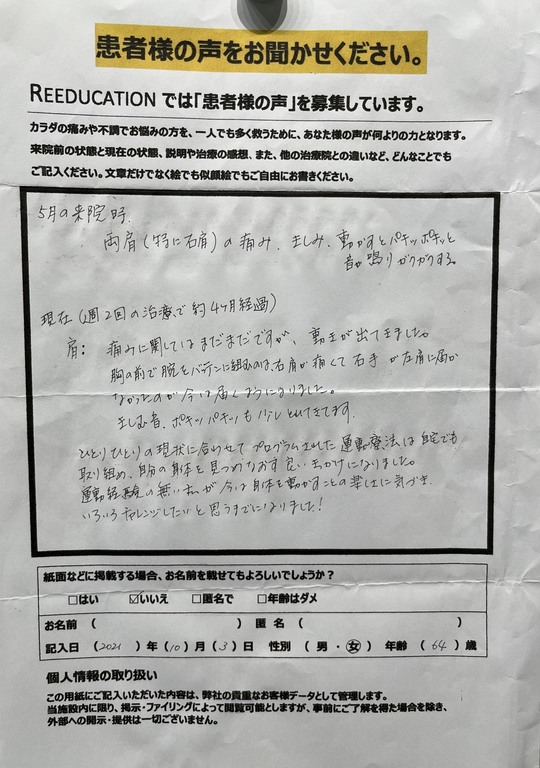 患者様の声をお聞かせください。
REEDUCATION では「患者様の声」を募集しています。
カラダの痛みや不調でお悩みの方を、一人でも多く救うために、あなた様の声が何よりの力となります。
来院前の状態と現在の状態、説明や治療の感想、また、他の治療院との違いなど、どんなことでも
ご記入ください。文章だけでなく絵でも似顔絵でもご自由にお書きください。
5月の来院時
両肩(特に右肩)の痛み、きしみ、動かすとパキッポキッと
音が鳴りガクガクする。
現在(週2回の治療で約4ヶ月経過)
肩: 痛みに関してはまだまだですが、動きが出てきました。
胸の前で腕をバッテンに組むのは、右肩が痛くて右手が左肩に届か
なかったのが今は届くようになりました。
きしむ音、ポキッパキッも少しとれてきてます。
ひとりひとりの現状に合わせてプログラムされた運動療法は自宅でも
取り組め、自分の身体を見つめなおす良いきっかけになりました。
運動経験の無い私が今は身体を動かすことの楽しさに気づき、
いろいろチャレンジしたいと思うまでになりました!
紙面などに掲載する場合、お名前を載せてもよろしいでしょうか?
□はい ☑いいえ □匿名で □年齢はダメ
お名前( ) 匿名( )
記入日(2021)年(10)月(3)日 性別(男・女) 年齢(64)歳
個人情報の取り扱い
この用紙にご記入いただいた内容は、弊社の貴重なお客様データとして管理します。
当施設内に限り、掲示・ファイリングによって閲覧可能としますが、事前にご了解を得た場合を除き、
外部への開示・提供は一切ございません。